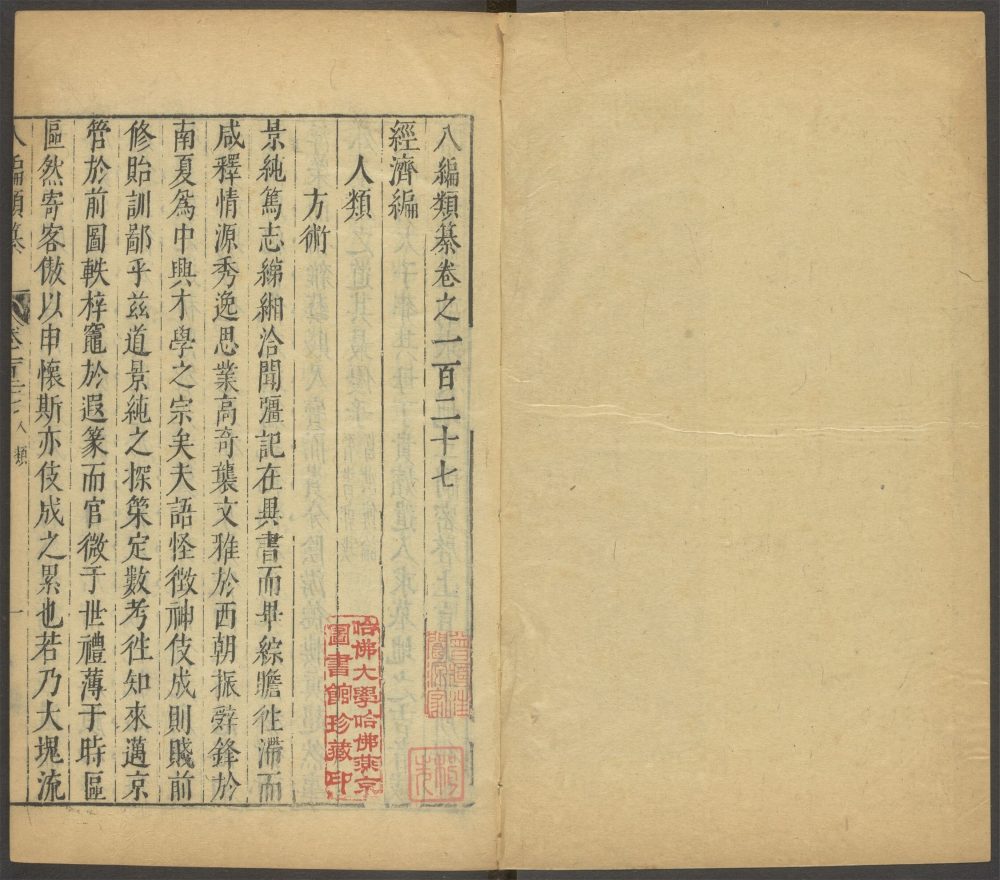 八編類纂卷之一百二十七
經濟編
人類
方術
景純篤志綈緗洽聞彊記在異書而畢綜瞻徃滯而
咸釋情源秀逸思業高奇襲文雅於西朝振辤鋒於
南夏爲中興才學之宗矣夫語怪徵神伎成則賤前
修貽訓鄙乎兹道景純之探䇿定數考徃知來邁京
管於前圖軼梓竈於遐篆而官微于世禮薄于時區
區然寄客傲以申懷斯亦伎成之累也若乃大塊流
八編類纂
卷一百二十七 人類
一
哈佛大學哈佛燕京
圖書館珍藏印